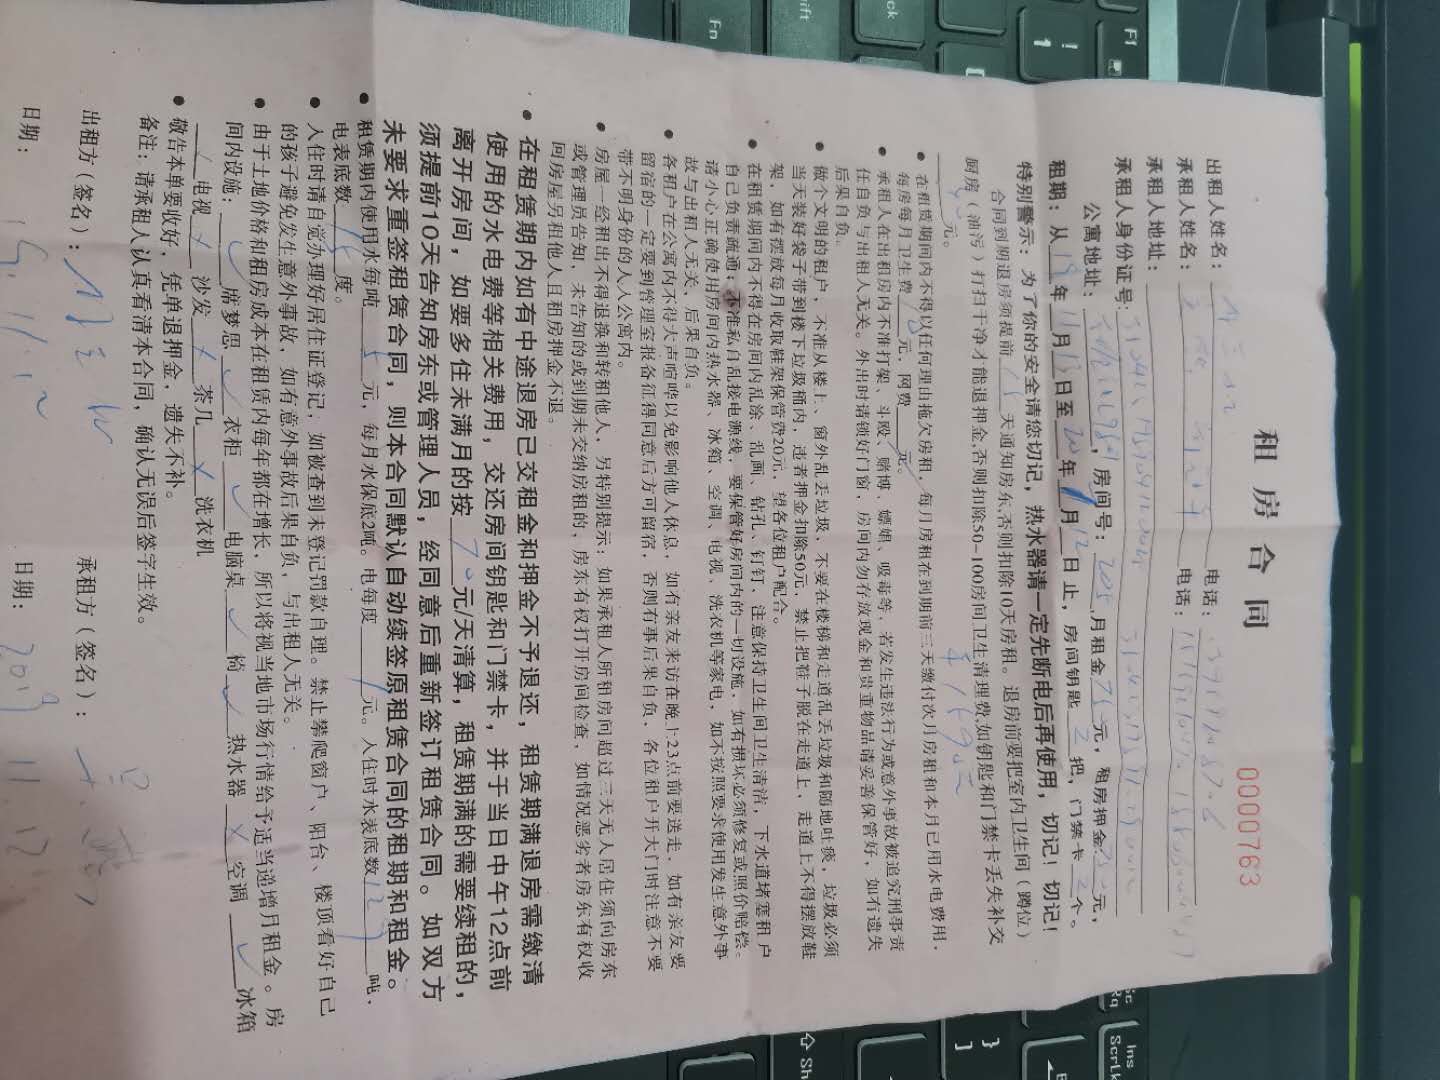 租房合同
0000763
出租人姓名： 电话：
承租人姓名： 电话：
承租人地址：
承租人身份证号：
公寓地址： ，房间号：205，月租金 元，租房押金 元，
租期：从19年11月13日至20年1月12日止，房间钥匙2把，门禁卡2个。
特别警示：为了你的安全请您切记，热水器请一定先断电后再使用，切记！切记！
合同到期退房须提前15天通知房东,否则扣除10天房租。退房前要把室内卫生间（蹲位）
厨房（油污）打扫干净才能退押金,否则扣除50-100房间卫生清理费,如钥匙和门禁卡丢失补交
元。
●在租赁期间内不得以任何理由拖欠房租，每月房租在到期前三天缴付次月房租和本月已用水电费用，
每房每月卫生费 元，网费 元。
●承租人在出租房内不准打架、斗殴、赌博、嫖娼、吸毒等，若发生违法行为或意外事故被追究刑事责
任自负与出租人无关。外出时请锁好门窗，房间内勿存放现金和贵重物品请妥善保管好，如有遗失
后果自负。
●做个文明的租户，不准从楼上、窗外乱丢垃圾，不要在楼梯和走道乱丢垃圾和随地吐痰，垃圾必须
当天装好袋子带到楼下垃圾桶内，违者押金扣除50元，禁止把鞋子脱在走道上，走道上不得摆放鞋
架，如有摆放每月收取鞋架保管费20元，望各位租户配合。
●在租赁期间内不得在房间内乱涂、乱画、钻孔、钉钉，注意保持卫生间卫生清洁，下水道堵塞租户
自己负责疏通；不准私自乱接电源线，要保管好房间内的一切设施，如有损坏必须修复或照价赔偿。
请小心正确使用房间内热水器、冰箱、空调、电视、洗衣机等家电，如不按照要求使用发生意外事
故与出租人无关，后果自负。
●各租户在公寓内不得大声喧哗以免影响他人休息，如有亲友来访在晚上23点前要送走，如有亲友要
留宿的一定要到管理室报备征得同意后方可留宿，否则有事后果自负，各位租户开大门时注意不要
带不明身份的人入公寓内。
●房屋一经租出不得退换和转租他人，另特别提示：如果承租人所租房间超过三天无人居住须向房东
或管理员告知，未告知的或到期未交纳房租的，房东有权打开房间检查，如情况恶劣者房东有权收
回房屋另租他人且租房押金不退。
●在租赁期内如有中途退房已交租金和押金不予退还，租赁期满退房需缴清
使用的水电费等相关费用，交还房间钥匙和门禁卡，并于当日中午12点前
离开房间，如要多住未满月的按70元/天清算，租赁期满的需要续租的，
须提前10天告知房东或管理人员，经同意后重新签订租赁合同。如双方
未要求重签租赁合同，则本合同默认自动续签原租赁合同的租期和租金。
●租赁期内使用水每吨5元，每月水保底2吨。电每度1元。入住时水表底数129吨，
电表底数 度。
●入住时请自觉办理好居住证登记，如被查到未登记罚款自理。禁止攀爬窗户、阳台、楼顶看好自己
的孩子避免发生意外事故，如有意外事故后果自负，与出租人无关。
●由于土地价格和租房成本在租赁内每年都在增长，所以将视当地市场行情给予适当递增月租金。房
间内设施：✓席梦思✓衣柜✓电脑桌✓椅✓热水器✗空调✓冰箱
电视 沙发✗茶几✗洗衣机
●敬告本单要收好，凭单退押金，遗失不补。
备注：请承租人认真看清本合同，确认无误后签字生效。
出租方（签名）： 承租方（签名）：
日期：19.11.12 日期：2019 11.12